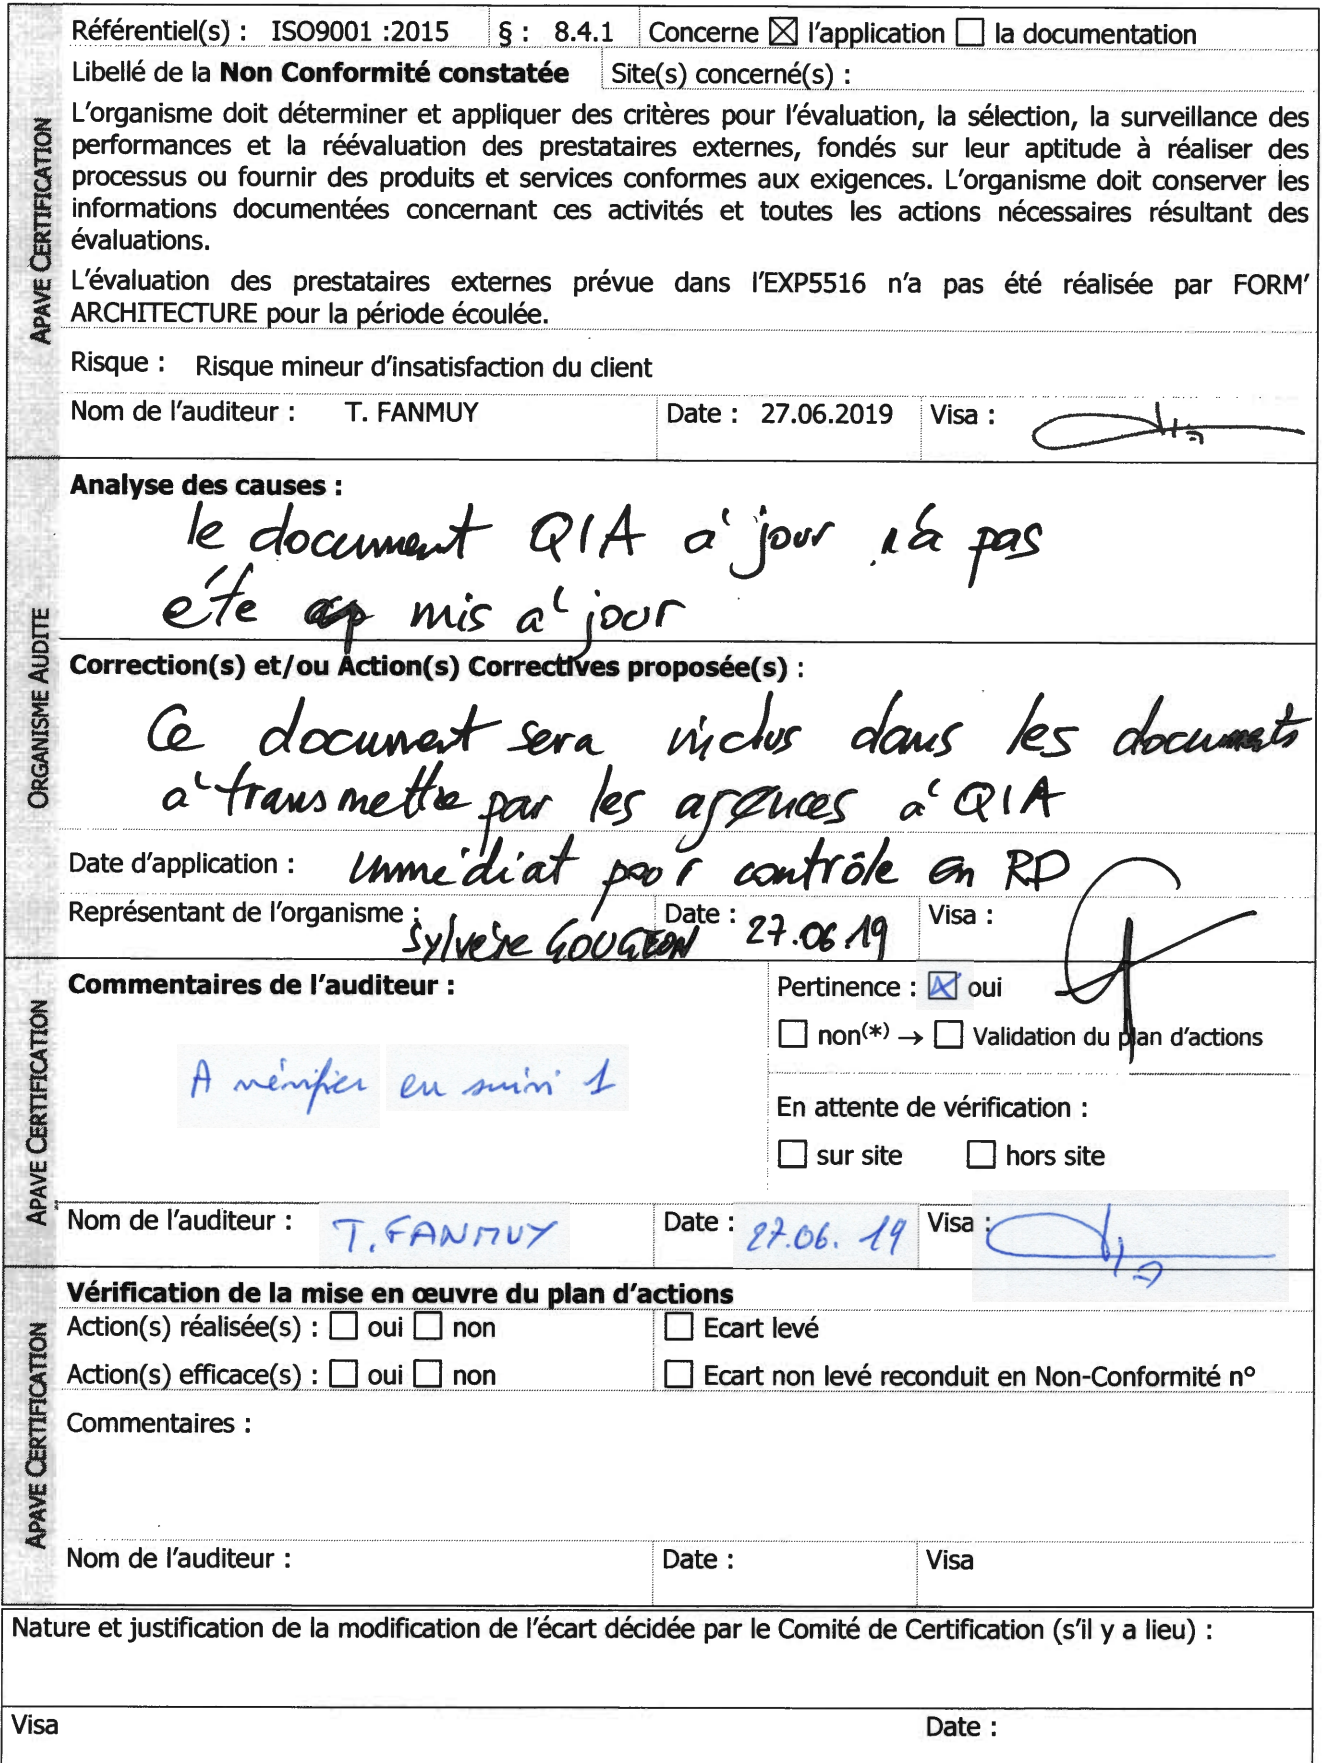 Référentiel(s) : ISO9001 :2015 § : 8.4.1 Concerne ☒ l'application ☐ la documentation
Libellé de la Non Conformité constatée Site(s) concerné(s) :
L'organisme doit déterminer et appliquer des critères pour l'évaluation, la sélection, la surveillance des
performances et la réévaluation des prestataires externes, fondés sur leur aptitude à réaliser des
processus ou fournir des produits et services conformes aux exigences. L'organisme doit conserver les
informations documentées concernant ces activités et toutes les actions nécessaires résultant des
évaluations.
L'évaluation des prestataires externes prévue dans l'EXP5516 n'a pas été réalisée par FORM'
ARCHITECTURE pour la période écoulée.
Risque : Risque mineur d'insatisfaction du client
Nom de l'auditeur : T. FANMUY Date : 27.06.2019 Visa :
APAVE CERTIFICATION
Analyse des causes :
le document QIA à jour n'a pas
été mis à jour
Correction(s) et/ou Action(s) Correctives proposée(s) :
Ce document sera inclus dans les documents
à transmettre par les agences à QIA
Date d'application : immédiat pour contrôle en RD
Représentant de l'organisme : Sylvère GOUGEON Date : 27.06.19 Visa :
ORGANISME AUDITE
Commentaires de l'auditeur : Pertinence : ☒ oui
☐ non(*) → ☐ Validation du plan d'actions
A vérifier en suivi 1
En attente de vérification :
☐ sur site ☐ hors site
Nom de l'auditeur : T. FANMUY Date : 27.06.19 Visa :
APAVE CERTIFICATION
Vérification de la mise en œuvre du plan d'actions
Action(s) réalisée(s) : ☐ oui ☐ non ☐ Ecart levé
Action(s) efficace(s) : ☐ oui ☐ non ☐ Ecart non levé reconduit en Non-Conformité n°
Commentaires :
Nom de l'auditeur : Date : Visa
APAVE CERTIFICATION
Nature et justification de la modification de l'écart décidée par le Comité de Certification (s'il y a lieu) :
Visa Date :